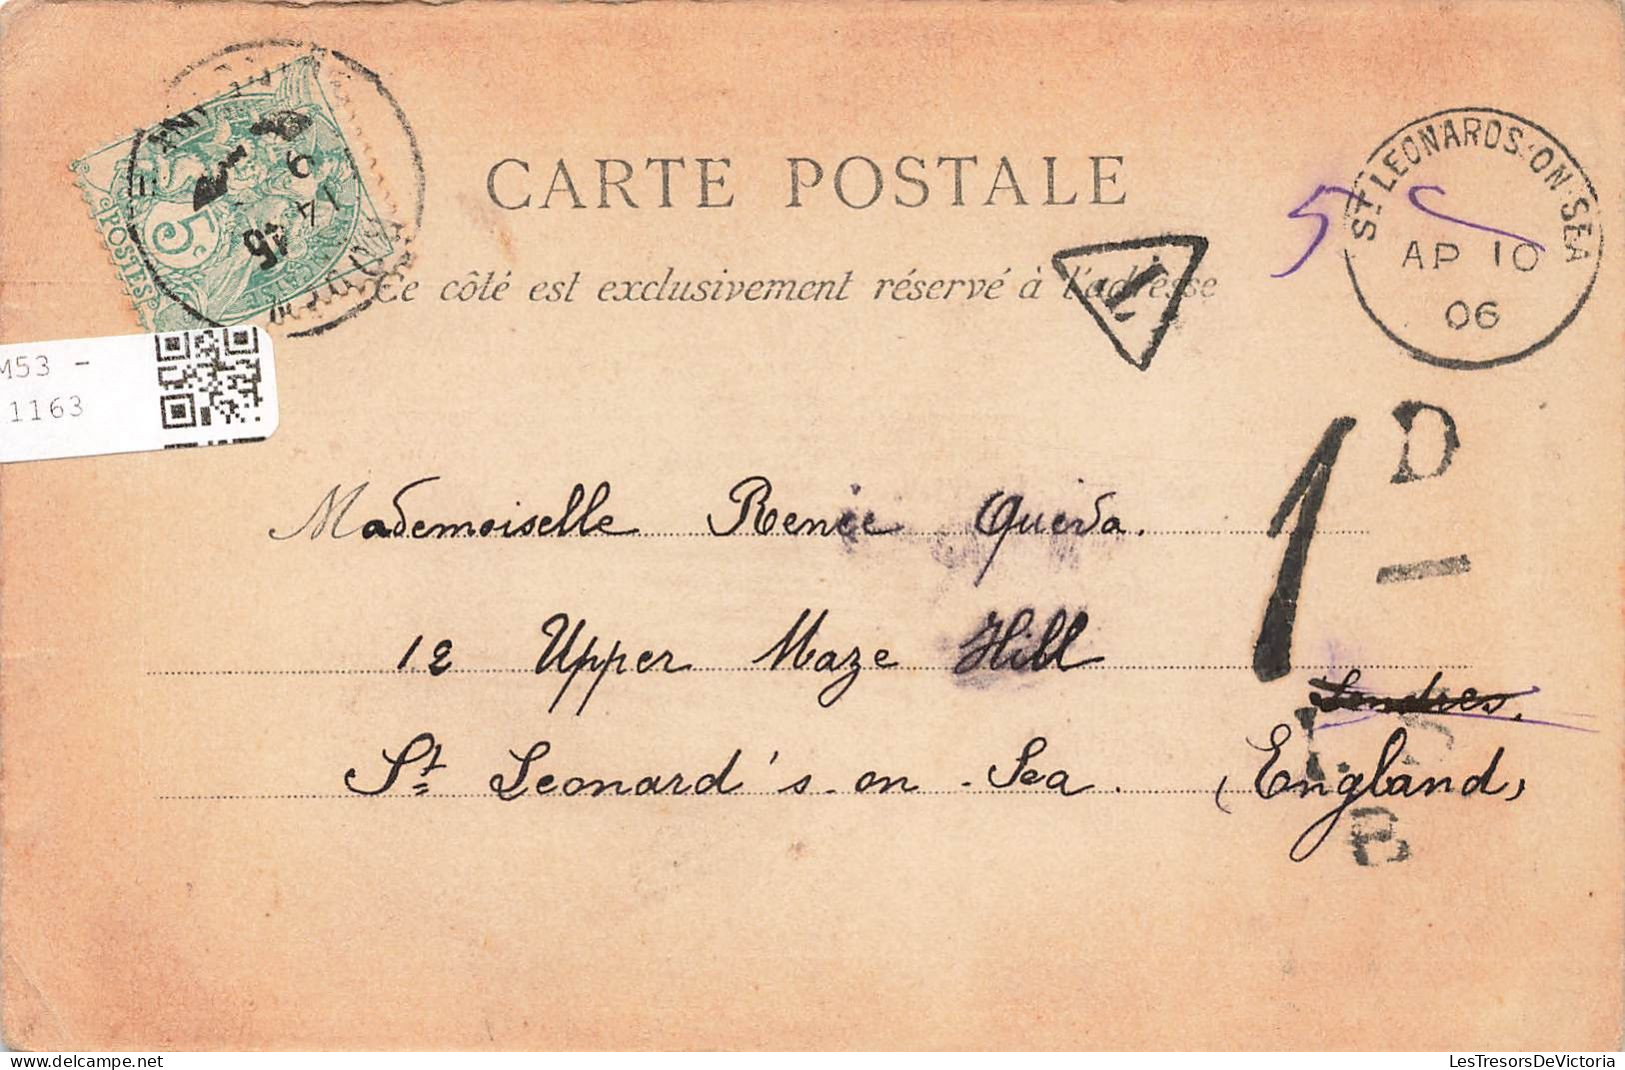 CARTE POSTALE
Ce côté est exclusivement réservé à l'adresse
5c
POSTES
T
5 c
ST LEONARDS-ON-SEA
AP 10
06
M53 -
1163
1 D
Mademoiselle Renée Queva.
12 Upper Maze Hill
Londres.
St Leonard's-on-Sea. (England)
LesTresorsDeVictoria